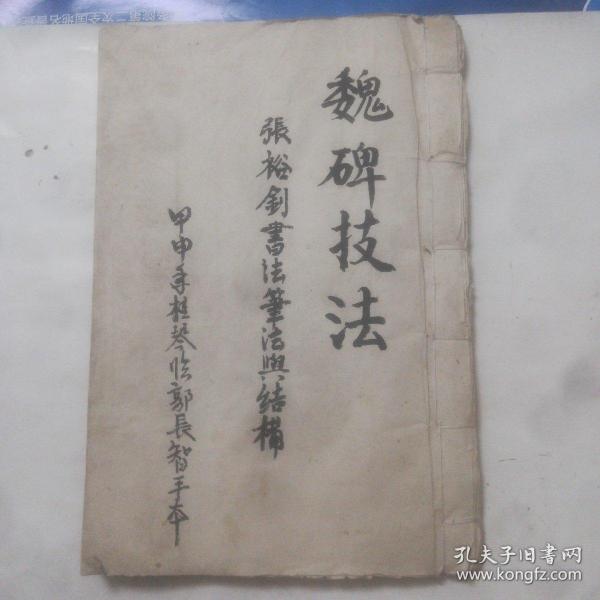 魏碑技法
張裕釗書法筆法與結構
甲申年桂琴臨郭長智手本
第二次全国地名普查
孔夫子旧書网
www.kongfz.com